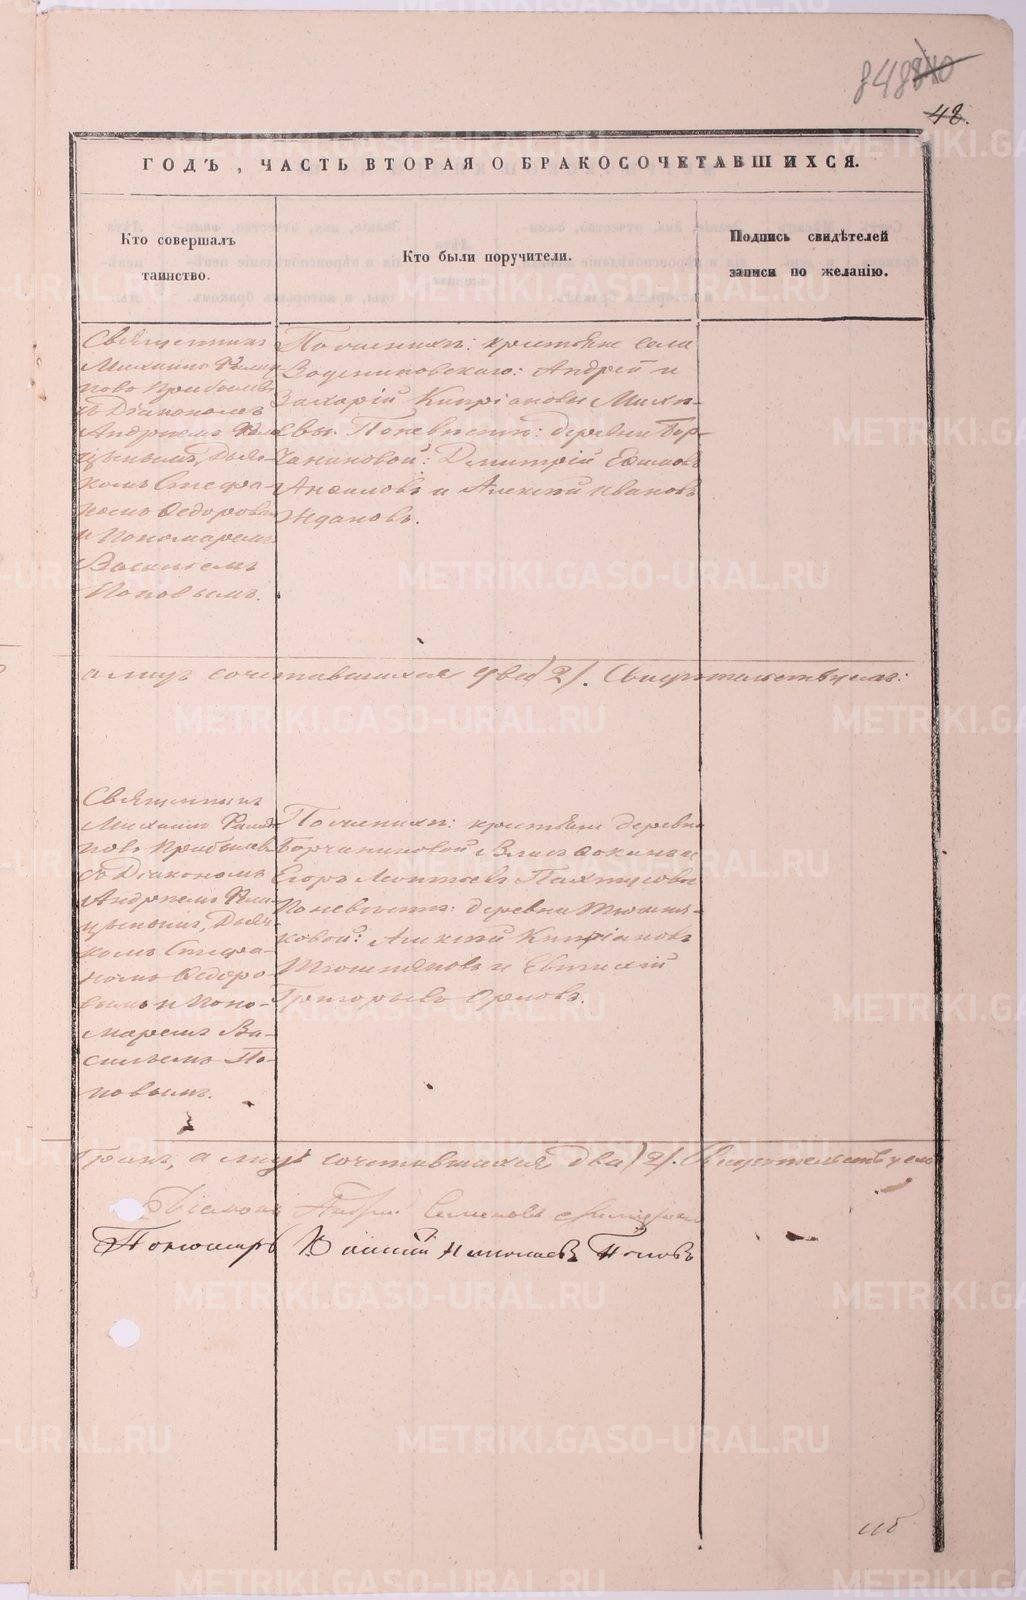 848
48.
ГОДЪ , ЧАСТЬ ВТОРАЯ О БРАКОСОЧЕТАВШИХСЯ.
Кто совершалъ
таинство.
Кто были поручители.
Подпись свидѣтелей
записи по желанію.
Священникъ
Михаилъ
новъ Прибылевъ
съ Діакономъ
Андреемъ
Дьяч-
комъ Стефа-
номъ Ѳедоровымъ
и Пономаремъ
Василіемъ
Поповымъ.
По женихѣ: крестьяне села
Андрей и
Захарій Кипріановы
По невѣстѣ: деревни Бор-
чаниновой: Дмитрій Ефимовъ
и Алексѣй Ивановъ
Ждановъ.
а лицъ сочетавшихся два /2/. Свидѣтельствуемъ:
Священникъ
Михаилъ
новъ Прибылевъ
съ Діакономъ
Андреемъ
Дьяч-
комъ Стефа-
номъ Ѳедоро-
вымъ и Поно-
маремъ Ва-
сильемъ По-
повымъ.
По женихѣ: крестьяне деревни
Борчаниновой Власъ
Егоръ Леонтьевъ
По невѣстѣ: деревни Тюшня-
ковой: Алексѣй Кипріановъ
Тюшняковъ и Евтихій
Григорьевъ Орловъ.
а лицъ сочетавшихся два /2/. Свидѣтельствуемъ
Діаконъ Андрей Семеновъ
Пономарь Василій Николаевъ Поповъ
METRIKI.GASO-URAL.RU